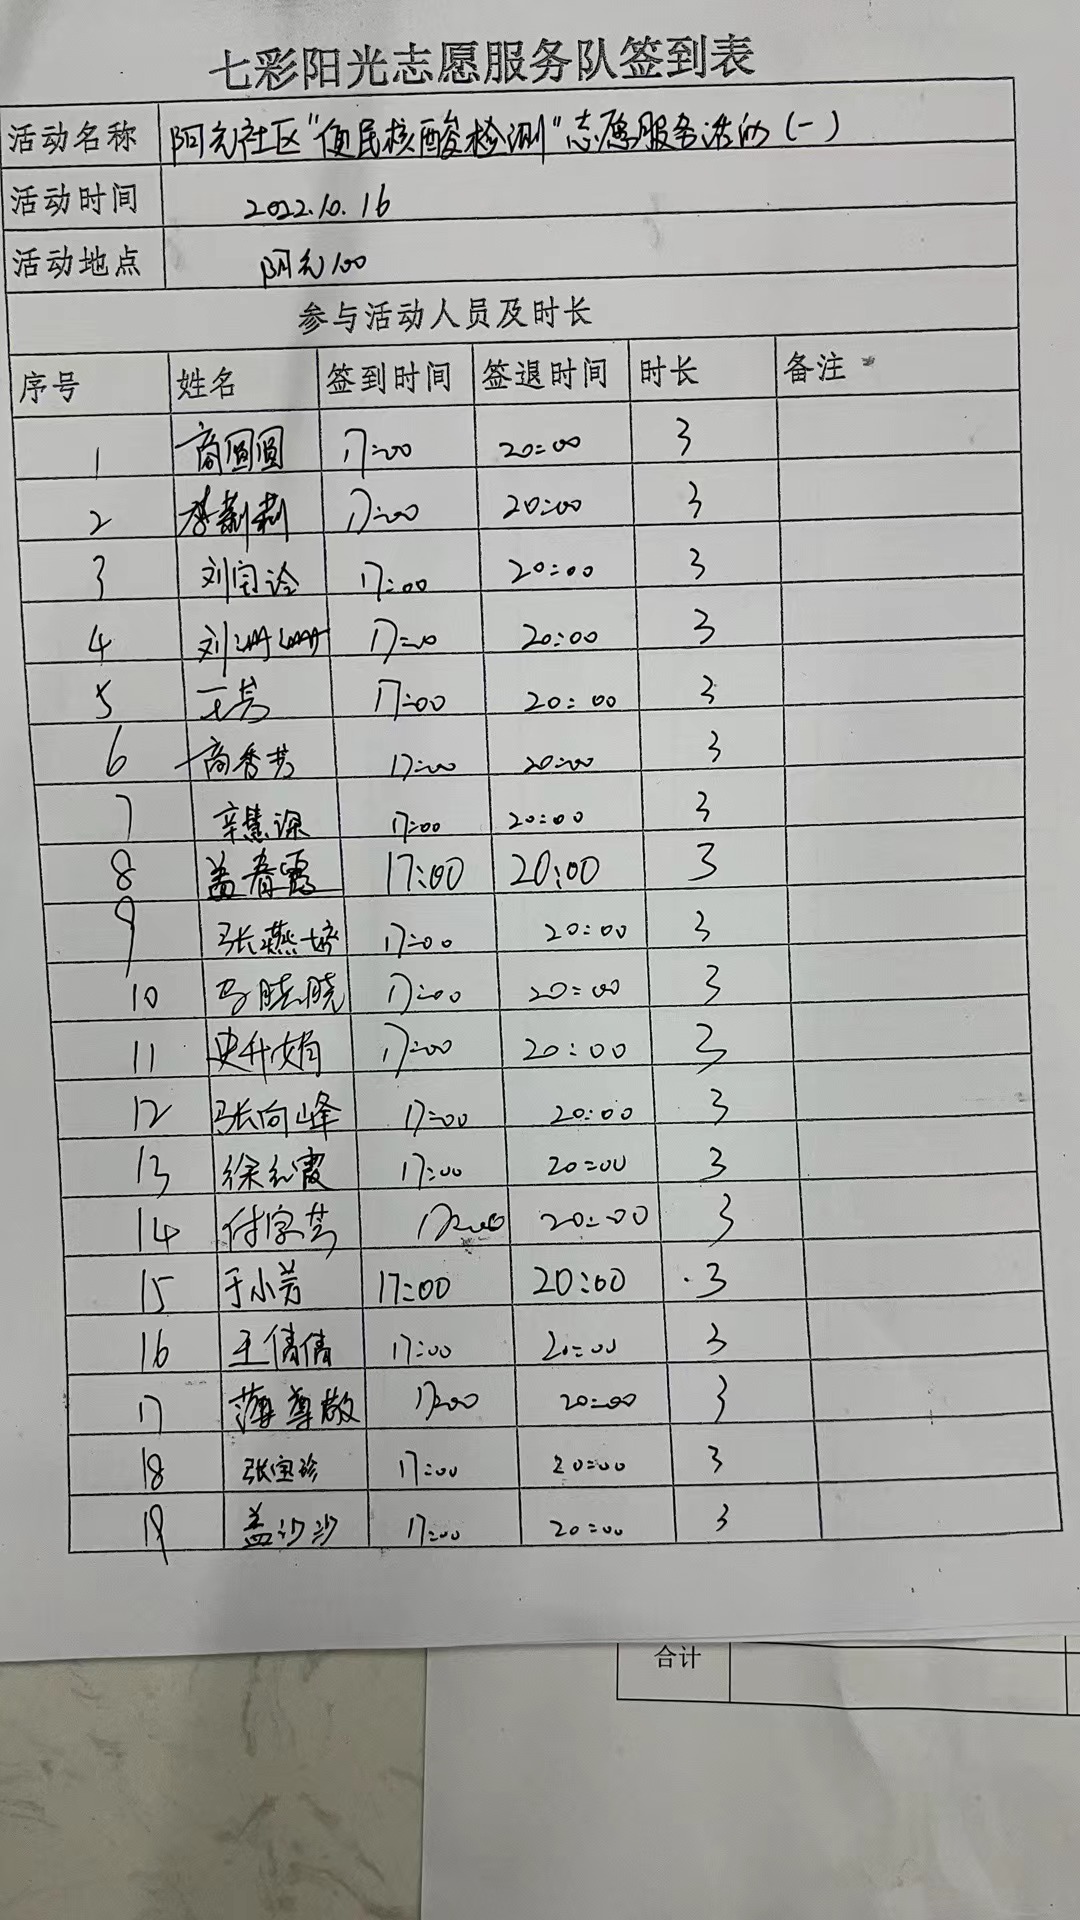 七彩阳光志愿服务队签到表
活动名称 阿元社区"便民核酸检测"志愿服务活动(一)
活动时间 2022.10.16
活动地点 阿元100
参与活动人员及时长
序号 姓名 签到时间 签退时间 时长 备注
1 商圆圆 17:00 20:00 3
2 李莉莉 17:00 20:00 3
3 刘宝玲 17:00 20:00 3
4 刘姗姗 17:00 20:00 3
5 王芳 17:00 20:00 3
6 商香芳 17:00 20:00 3
7 辛慧 17:00 20:00 3
8 盖春霞 17:00 20:00 3
9 张燕婷 17:00 20:00 3
10 马晓晓 17:00 20:00 3
11 史升娟 17:00 20:00 3
12 张向峰 17:00 20:00 3
13 徐红霞 17:00 20:00 3
14 付字芸 17:00 20:00 3
15 于小芳 17:00 20:00 3
16 王倩倩 17:00 20:00 3
17 薄尊敬 17:00 20:00 3
18 张宝珍 17:00 20:00 3
19 盖沙沙 17:00 20:00 3
合计